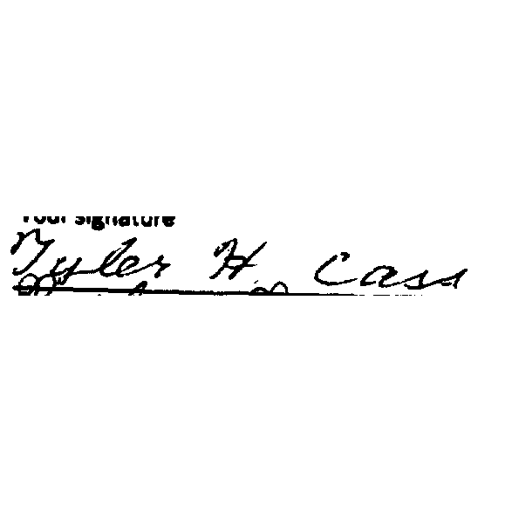 Your signature
Tyler H. Cass